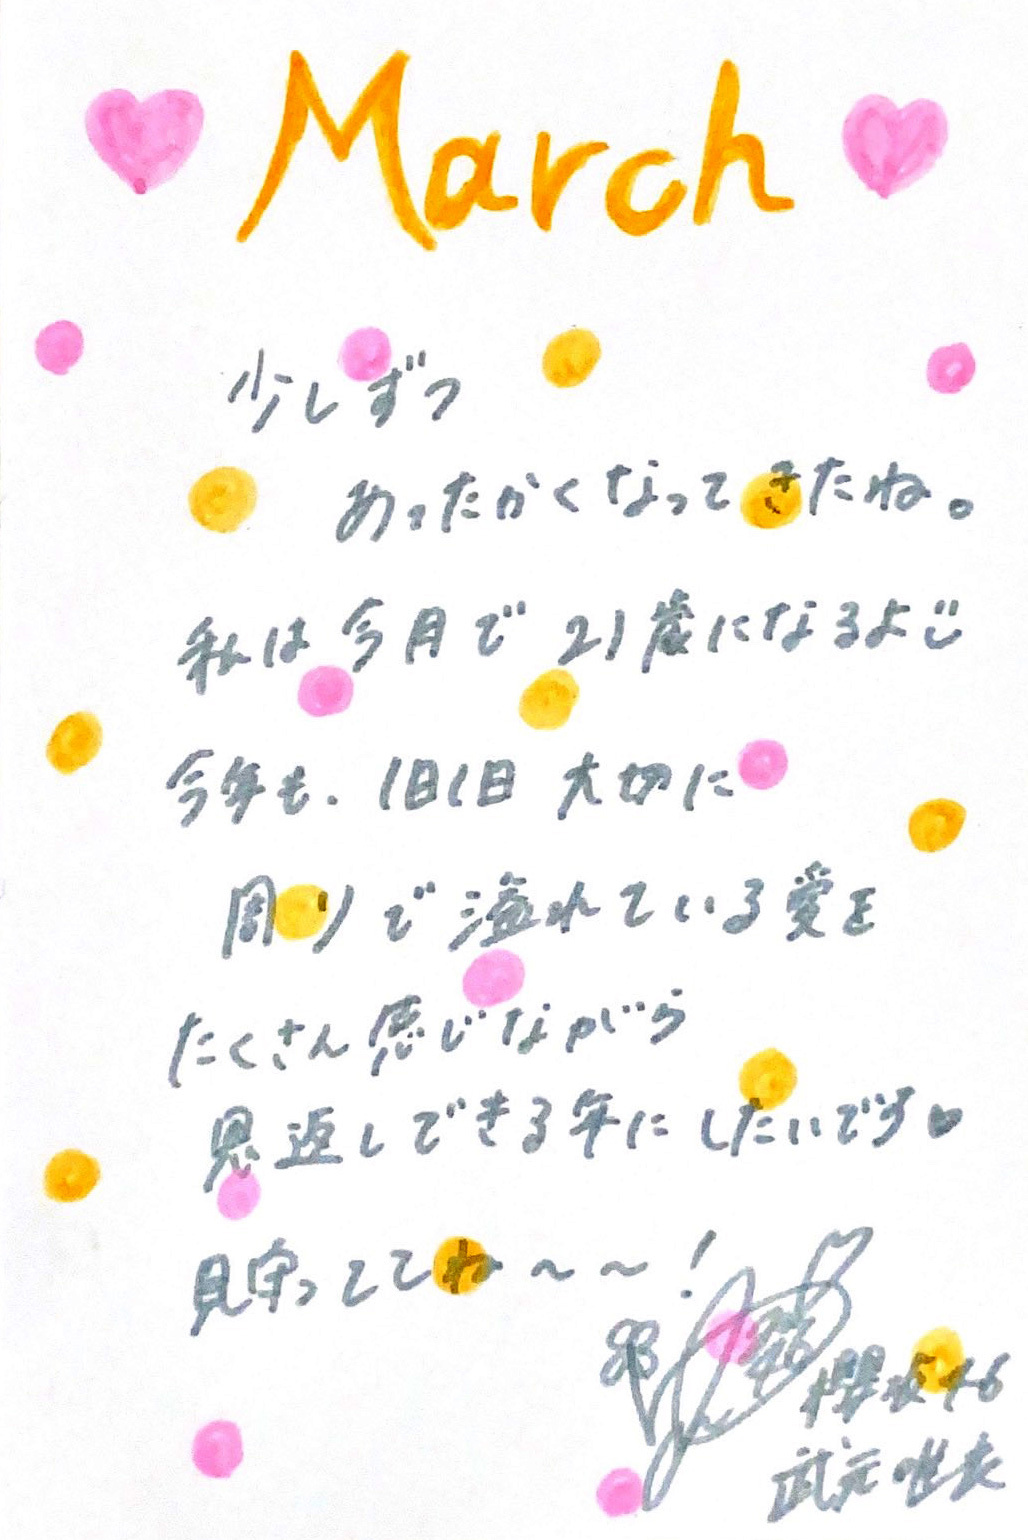 March
少しずつ
あったかくなってきたね。
私は今月で21歳になるよ
今年も、1日1日 大切に
周りで溢れている愛を
たくさん感じながら
恩返しできる年にしたいです♥
見守っててね〜〜!
櫻坂46
武元唯衣